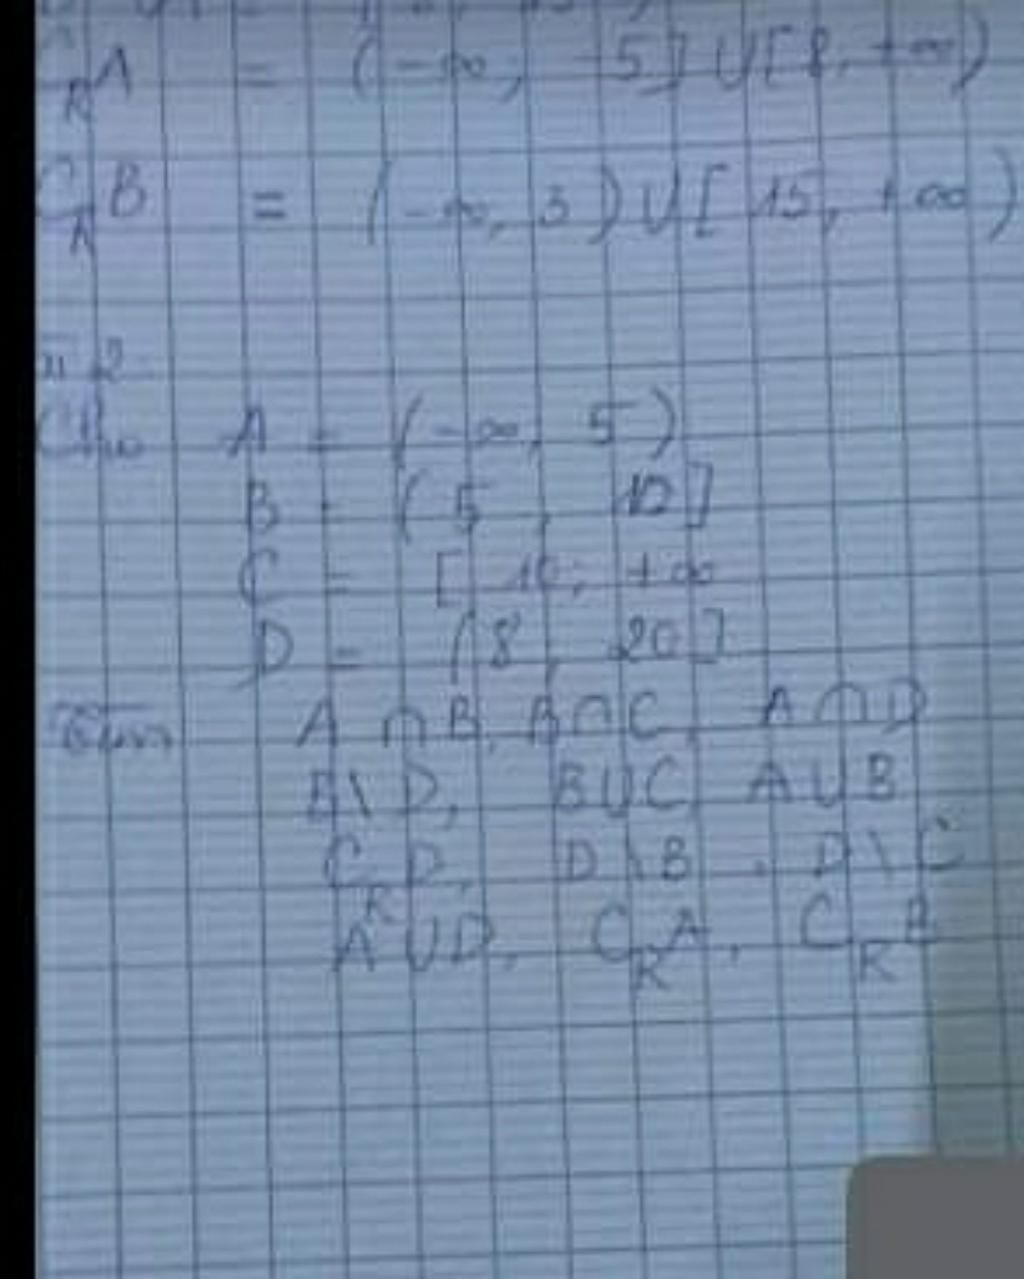 A = (-∞, -5] ∪ [8, +∞)
R
C B = (-∞, 3) ∪ [15, +∞)
2
Cho A = (-∞, 5)
B = (5, 10]
C = [10; +∞
D = (8, 20]
Tìm A ∩ B, B ∩ C, A ∩ D
B \ D, B ∪ C, A ∪ B
C_R D, D \ B, D \ C
A ∪ D, C_R A, C_R B